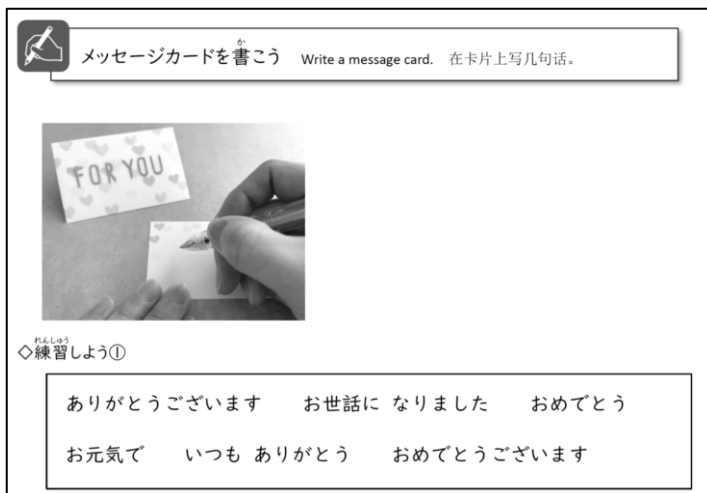 メッセージカードを書こう Write a message card. 在卡片上写几句话。
か
FOR YOU
れんしゅう
◇練習しよう①
ありがとうございます お世話に なりました おめでとう
お元気で いつも ありがとう おめでとうございます